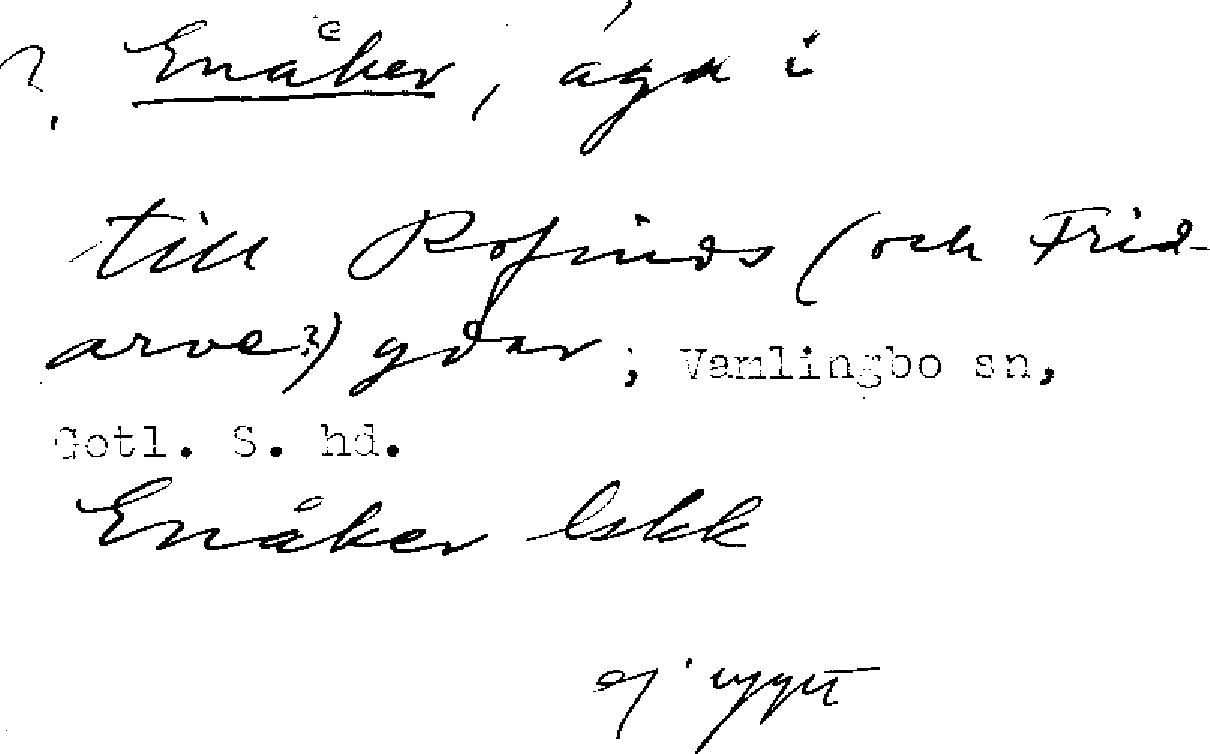 ?. Enåker, äga i
till Rofinds (och Frid-
arve?) gdar, Vamlingbo sn,
Gotl. S. hd.
Enåker lskk
ej